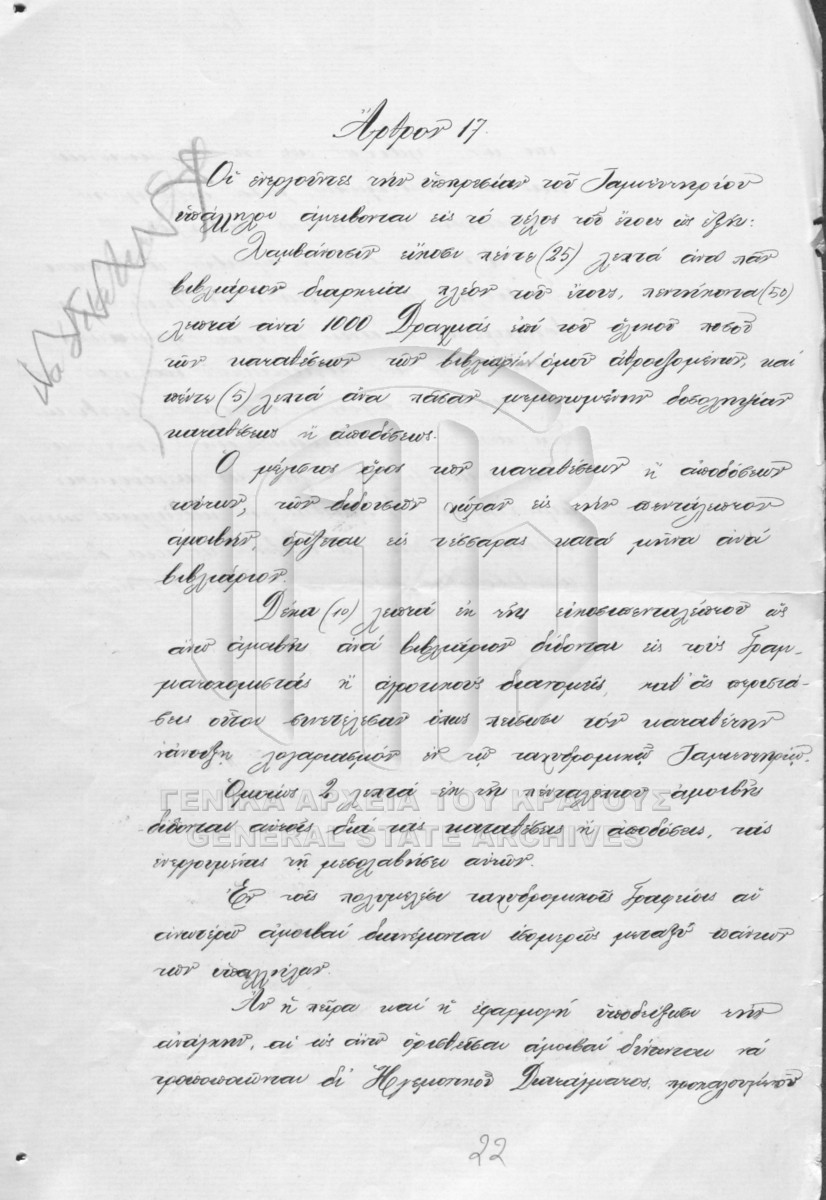 Ἄρθρον 17.
Οἱ ἐνεργοῦντες τὴν ὑπηρεσίαν τοῦ Ταμιευτηρίου
ὑπάλληλοι ἀμείβονται εἰς τὸ τέλος τοῦ ἔτους ὡς ἑξῆς:
Λαμβάνουσιν εἴκοσι πέντε (25) λεπτά ἀνά πᾶν
βιβλιάριον διαρκείας πλέον τοῦ ἔτους, πεντήκοντα (50)
λεπτά ἀνά 1000 Δραχμάς ἐπί τοῦ ὁλικοῦ ποσοῦ
τῶν καταθέσεων τῶν βιβλιαρίων ὁμοῦ ἀθροιζομένων, καί
πέντε (5) λεπτά ἀνα πᾶσαν μεμονωμένην δοσοληψίαν
καταθέσεως ἢ ἀποδόσεως.
Ὁ μέγιστος ὅρος τῶν καταθέσεων ἢ ἀποδόσεων
τούτων, τῶν διδουσῶν χώραν εἰς τὴν πεντάλεπτον
ἀμοιβήν, ὁρίζεται εἰς τέσσαρας κατά μῆνα ἀνά
βιβλιάριον.
Δέκα (10) λεπτά ἐκ τῆς εἰκοσιπενταλέπτου ὡς
ἄνω ἀμοιβῆς ἀνά βιβλιάριον δίδονται εἰς τοὺς Γραμ-
ματοκομιστάς ἢ ἀγροτικούς διανομεῖς, καθ' ἃς περιστά-
σεις οὗτοι συνετέλεσαν ὅπως πείσωσι τὸν καταθέτην
νἀνοίξῃ λογαριασμόν ἐν τῷ ταχυδρομικῷ Ταμιευτηρίῳ.
Ὁμοίως 2 λεπτά ἐκ τῆς πενταλέπτου ἀμοιβῆς
δίδονται αὐτοῖς διά τας καταθέσεις ἢ ἀποδόσεις, τάς
ἐνεργουμένας τῇ μεσολαβήσει αὐτῶν.
Ἐν τοῖς πολυμελέσι ταχυδρομικοῖς Γραφείοις αἱ
ἀνωτέρω ἀμοιβαί διανέμονται ἰσομερῶς μεταξὺ πάντων
τῶν ὑπαλλήλων.
Ἂν ἡ πεῖρα καί ἡ ἐφαρμογή ὑποδείξωσι τὴν
ἀνάγκην, αἱ ὡς ἄνω ὁρισθεῖσαι ἀμοιβαί δύνανται νά
τροποποιῶνται δι' Ἡγεμονικοῦ Διατάγματος, προκαλουμένου
22
ΓΕΝΙΚΑ ΑΡΧΕΙΑ ΤΟΥ ΚΡΑΤΟΥΣ
GENERAL STATE ARCHIVES